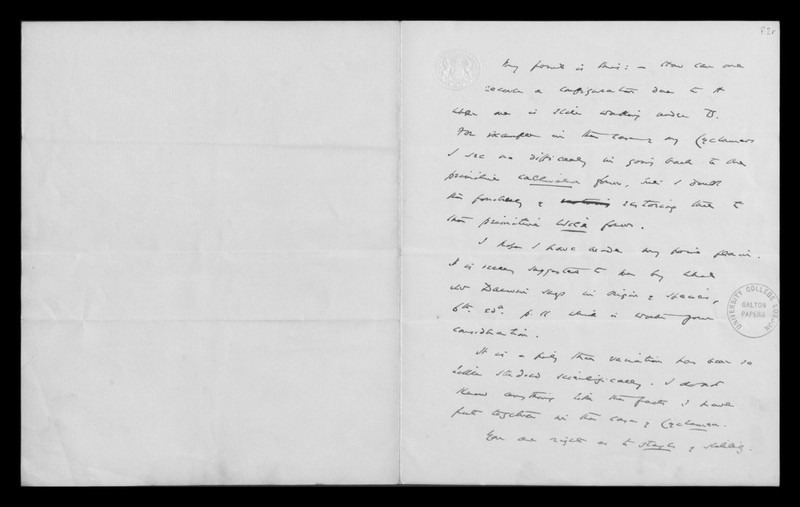 My point is this: – How can one
secure a configuration due to A
when one is still working under B.
For example in the case of my Cyclamens
I see no difficulty in going back to the
primitive cultivated form, but I doubt
the possibility of restoring that to
the primitive wild form.
I hope I have made my point plain.
It is really suggested to me by what
Mr Darwin says in Origin of Species,
6th edn. p. 11 which is worth your
consideration.
It is a pity that variation has been so
little studied scientifically. I do not
know anything like the facts I have
put together in the case of Cyclamen.
You are right as to of stability.
UNIVERSITY COLLEGE LONDON
GALTON
PAPERS